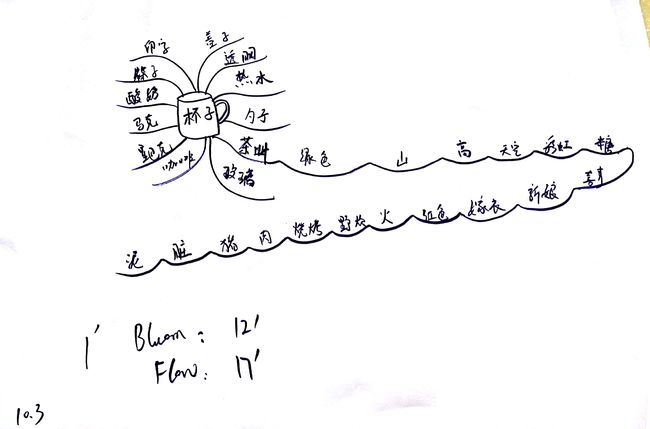 印字 盖子
透明
热水
酸奶
马克 杯子 勺子
咖啡 茶叶 绿色 山 高 天空 彩虹 糖
玻璃
泥 脏 猪 肉 烧烤 野炊 火 红色 嫁衣 新娘
1' Bloom: 12'
Flow: 17'
10.3